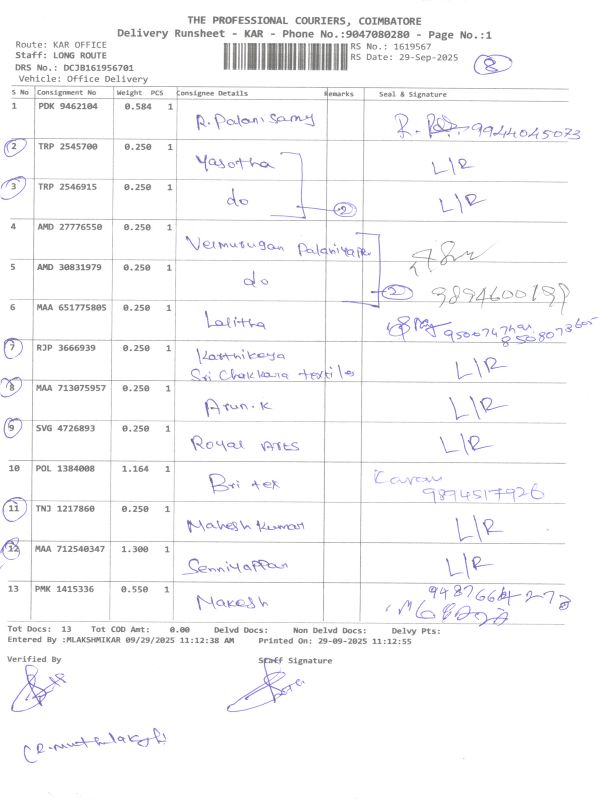 THE PROFESSIONAL COURIERS, COIMBATORE
Delivery Runsheet - KAR - Phone No.:9047080280 - Page No.:1
Route: KAR OFFICE RS No.: 1619567
Staff: LONG ROUTE RS Date: 29-Sep-2025 8
DRS No.: DCJB161956701
Vehicle: Office Delivery
S No Consignment No Weight PCS Consignee Details Remarks Seal & Signature
1 PDK 9462104 0.584 1 R. Palani Samy 9944045073
2 TRP 2545700 0.250 1 Yasotha L/R
3 TRP 2546915 0.250 1 do 2 L/R
4 AMD 27776550 0.250 1 Velmurugan
5 AMD 30831979 0.250 1 do 2
6 MAA 651775805 0.250 1 Lalitha
7 RJP 3666939 0.250 1 Karthikeya L/R
Sri Chakkara textiles
8 MAA 713075957 0.250 1 Arun.K L/R
9 SVG 4726893 0.250 1 Royal L/R
10 POL 1384008 1.164 1 Bri tex
9894517926
11 TNJ 1217860 0.250 1 Mahesh Kumar L/R
12 MAA 712540347 1.300 1 Senniyappan L/R
13 PMK 1415336 0.550 1 Makesh
Tot Docs: 13 Tot COD Amt: 0.00 Delvd Docs: Non Delvd Docs: Delvy Pts:
Entered By :MLAKSHMIKAR 09/29/2025 11:12:38 AM Printed On: 29-09-2025 11:12:55
Verified By Staff Signature